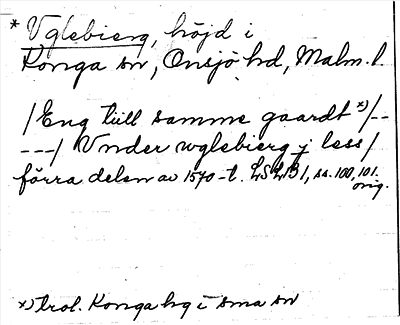 * Vglebierg, höjd i
Konga sn, Onsjö hd, Malm. l.
/Eng till samme gaardt x)/--
---/ Vnder vglebierg j less/
förra delen av 1570-t. LSLB1, ss. 100, 101.
orig.
x) trol. Konga hg i sma sn